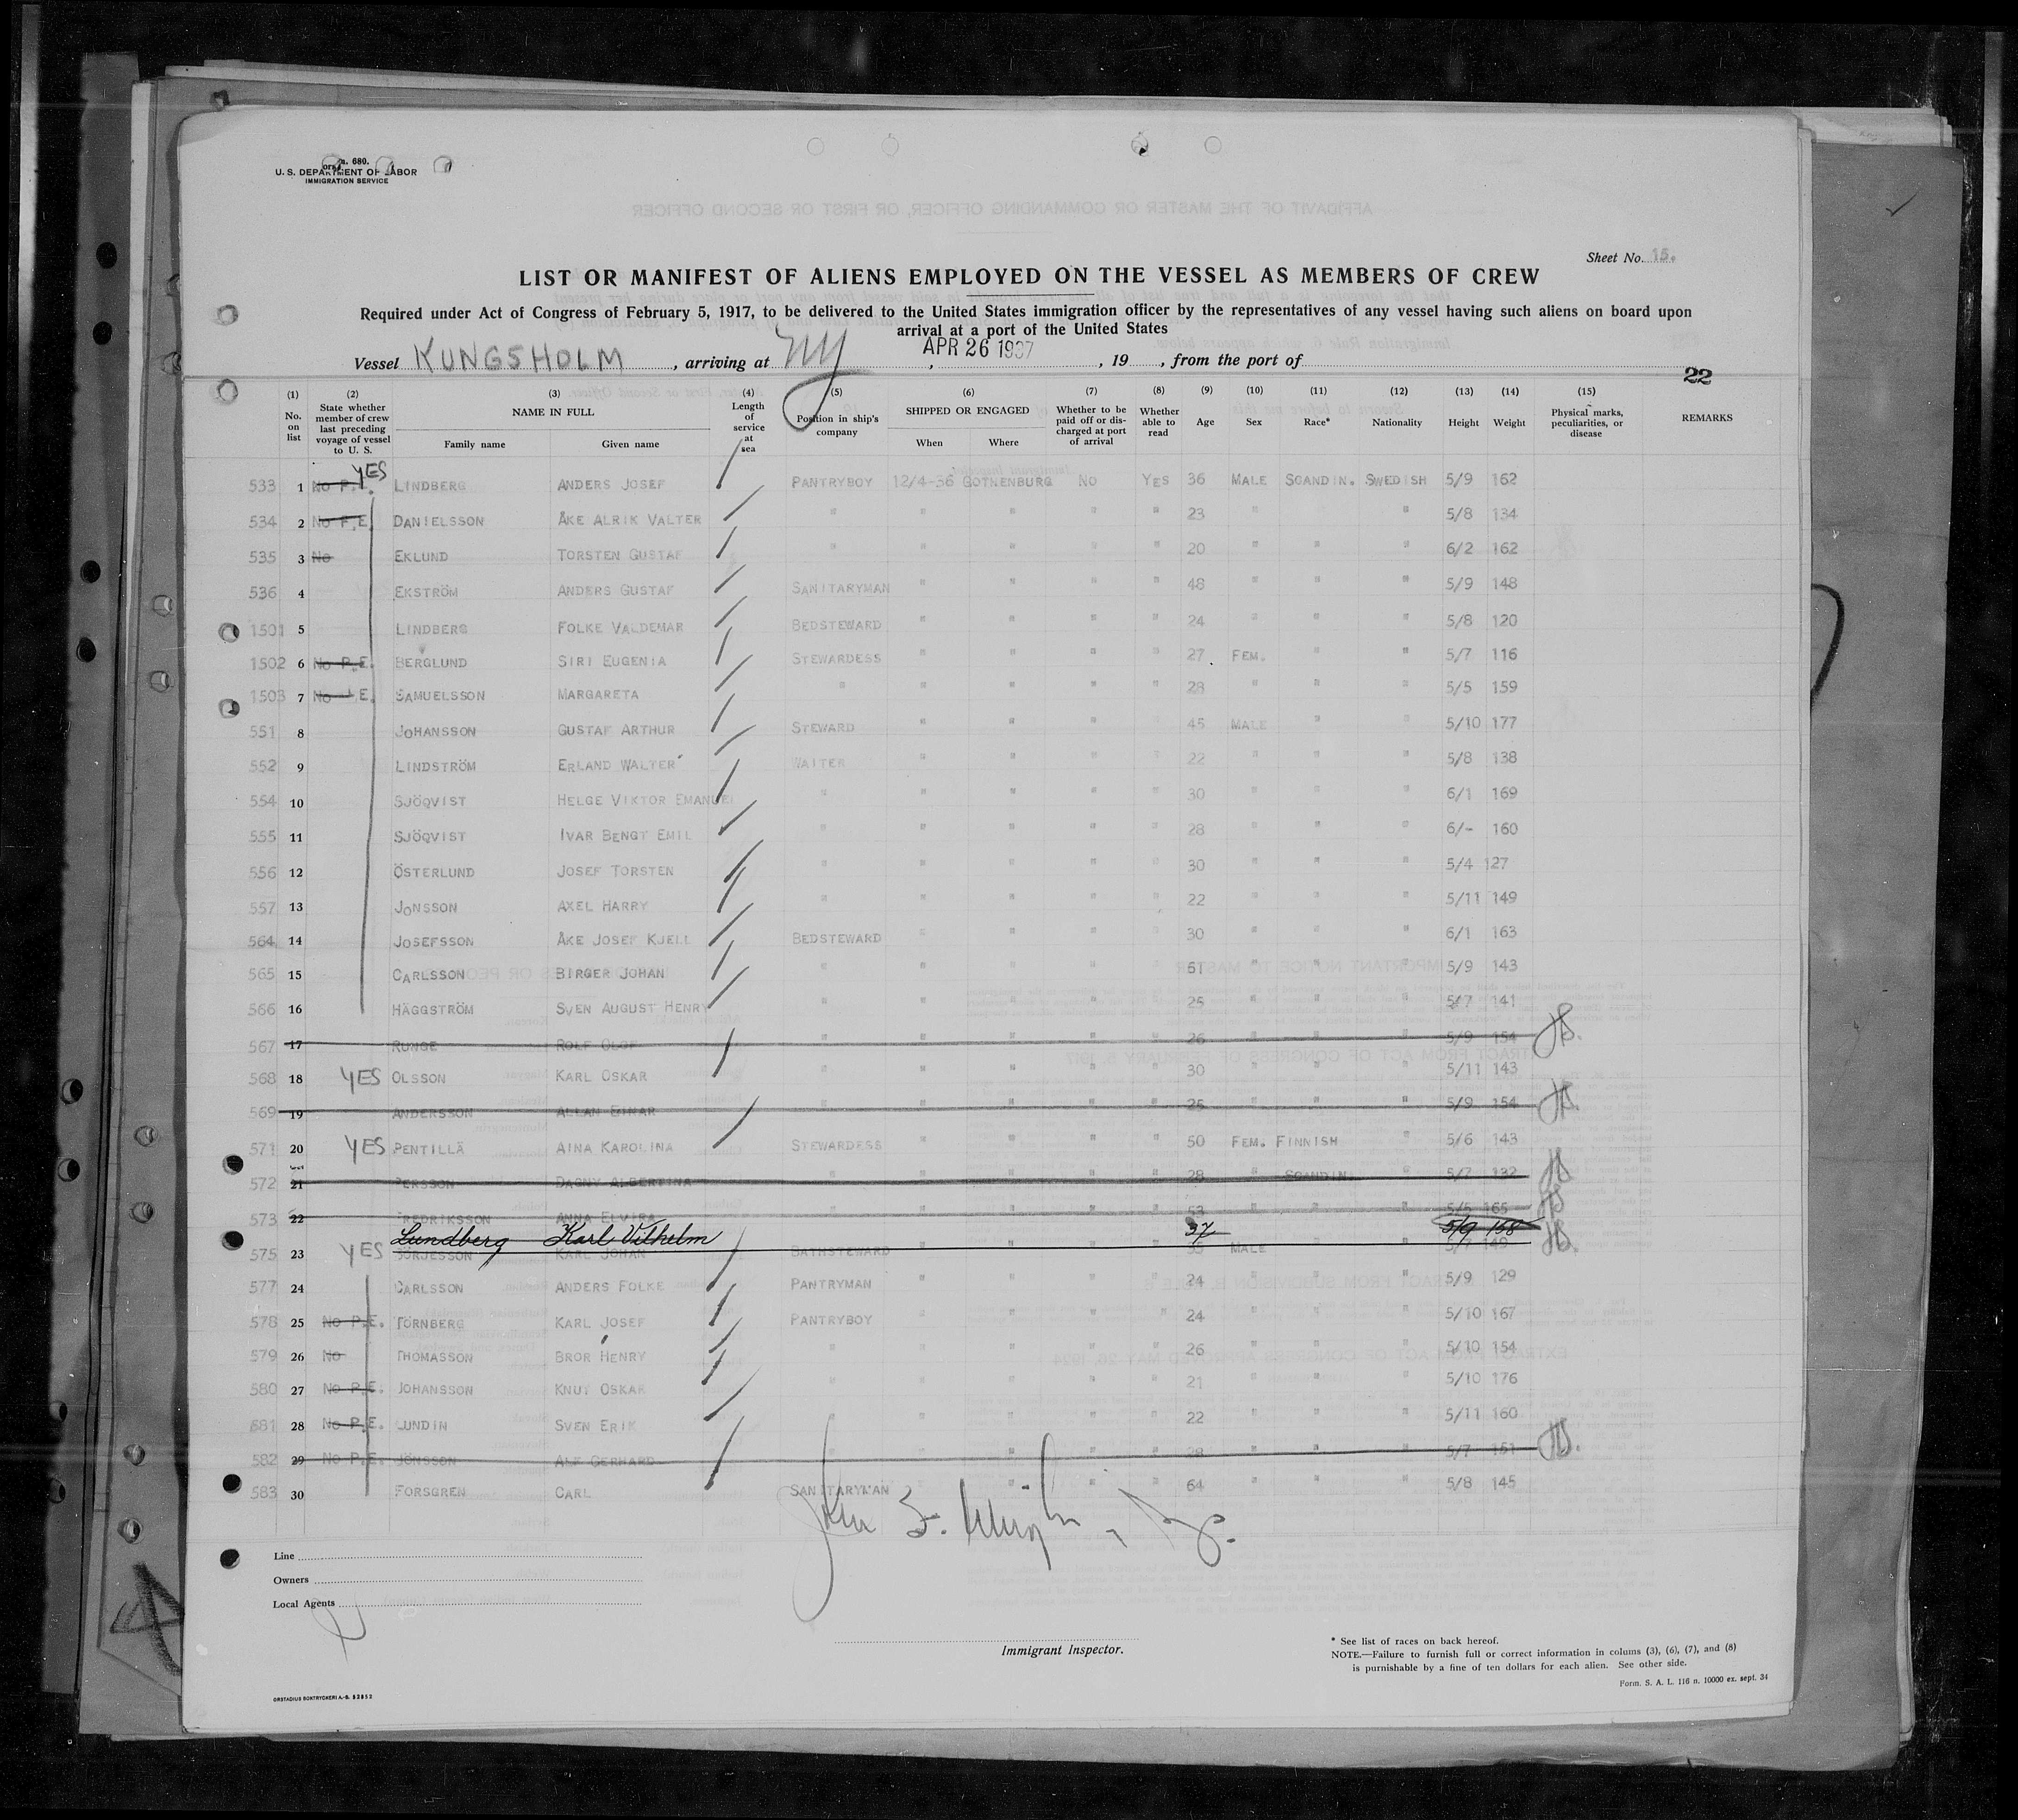 Form. 680.
U. S. DEPARTMENT OF LABOR
IMMIGRATION SERVICE
Sheet No. 15.
LIST OR MANIFEST OF ALIENS EMPLOYED ON THE VESSEL AS MEMBERS OF CREW
Required under Act of Congress of February 5, 1917, to be delivered to the United States immigration officer by the representatives of any vessel having such aliens on board upon
arrival at a port of the United States
Vessel KUNGSHOLM, arriving at NY, APR 26 1937, 19, from the port of
22
(1) No. on list (2) State whether member of crew last preceding voyage of vessel to U. S. (3) NAME IN FULL Family name Given name (4) Length of service at sea (5) Position in ship's company (6) SHIPPED OR ENGAGED When Where (7) Whether to be paid off or discharged at port of arrival (8) Whether able to read (9) Age (10) Sex (11) Race* (12) Nationality (13) Height (14) Weight (15) Physical marks, peculiarities, or disease REMARKS
533 1 No P.E. YES LINDBERG ANDERS JOSEF PANTRYBOY 12/4-36 GOTHENBURG NO YES 36 MALE SCANDIN. SWEDISH 5/9 162
534 2 No P.E. DANIELSSON ÅKE ALRIK VALTER " " " " " 23 " " " 5/8 134
535 3 No EKLUND TORSTEN GUSTAF " " " " " 20 " " " 6/2 162
536 4 EKSTRÖM ANDERS GUSTAF SANITARYMAN " " " " 48 " " " 5/9 148
1501 5 LINDBERG FOLKE VALDEMAR BEDSTEWARD " " " " 24 " " " 5/8 120
1502 6 No P.E. BERGLUND SIRI EUGENIA STEWARDESS " " " " 27 FEM. " " 5/7 116
1503 7 No P.E. SAMUELSSON MARGARETA " " " " " 28 " " " 5/5 159
551 8 JOHANSSON GUSTAF ARTHUR STEWARD " " " " 45 MALE " " 5/10 177
552 9 LINDSTRÖM ERLAND WALTER WAITER " " " " 22 " " " 5/8 138
554 10 SJÖQVIST HELGE VIKTOR EMANUEL " " " " " 30 " " " 6/1 169
555 11 SJÖQVIST IVAR BENGT EMIL " " " " " 28 " " " 6/- 160
556 12 ÖSTERLUND JOSEF TORSTEN " " " " " 30 " " " 5/4 127
557 13 JONSSON AXEL HARRY " " " " " 22 " " " 5/11 149
564 14 JOSEFSSON ÅKE JOSEF KJELL BEDSTEWARD " " " " 30 " " " 6/1 163
565 15 CARLSSON BIRGER JOHAN " " " " " 61 " " " 5/9 143
566 16 HÄGGSTRÖM SVEN AUGUST HENRY " " " " " 25 " " " 5/7 141
567 17 RUNGE ROLF OLOF " " " " " 26 " " " 5/9 154
568 18 YES OLSSON KARL OSKAR " " " " " 30 " " " 5/11 143
569 19 ANDERSSON ALLAN EINAR " " " " " 25 " " " 5/9 154
571 20 YES PENTILLÄ AINA KAROLINA STEWARDESS " " " " 50 FEM. FINNISH " 5/6 143
572 21 PERSSON DAGNY ALBERTINA " " " " " 28 " SCANDIN. " 5/7 132
573 22 FREDRIKSSON ANNA ELVIRA " " " " " 53 " " " 5/5 165
Lundberg Karl Vilhelm 37 5/9 158
575 23 YES BÖRJESSON KARL JOHAN BATHSTEWARD " " " " MALE " " 5/7 149
577 24 CARLSSON ANDERS FOLKE PANTRYMAN " " " " 24 " " " 5/9 129
578 25 No P.E. TÖRNBERG KARL JOSEF PANTRYBOY " " " " 24 " " " 5/10 167
579 26 No THOMASSON BROR HENRY " " " " " 26 " " " 5/10 154
580 27 No P.E. JOHANSSON KNUT OSKAR " " " " " 21 " " " 5/10 176
581 28 No P.E. LUNDIN SVEN ERIK " " " " " 22 " " " 5/11 160
582 29 No P.E. JÖNSSON ALF GERHARD " " " " " 28 " " " 5/7 151
583 30 FORSGREN CARL SANITARYMAN " " " " 64 " " " 5/8 145
Line
Owners
Local Agents
Immigrant Inspector.
* See list of races on back hereof.
NOTE.—Failure to furnish full or correct information in colums (3), (6), (7), and (8)
is punishable by a fine of ten dollars for each alien. See other side.
Form. S. A. L. 116 n. 10000 ex. sept. 34
ORSTADIUS BOKTRYCKERI A.-B. 52852